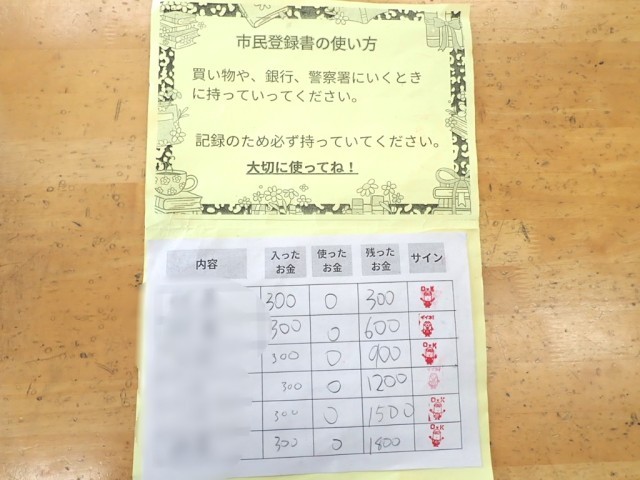 市民登録書の使い方
買い物や、銀行、警察署にいくとき
に持っていってください。
記録のため必ず持っていてください。
大切に使ってね！
内容 入ったお金 使ったお金 残ったお金 サイン
300 0 300
300 0 600
300 0 900
300 0 1200
300 0 1500
300 0 1800